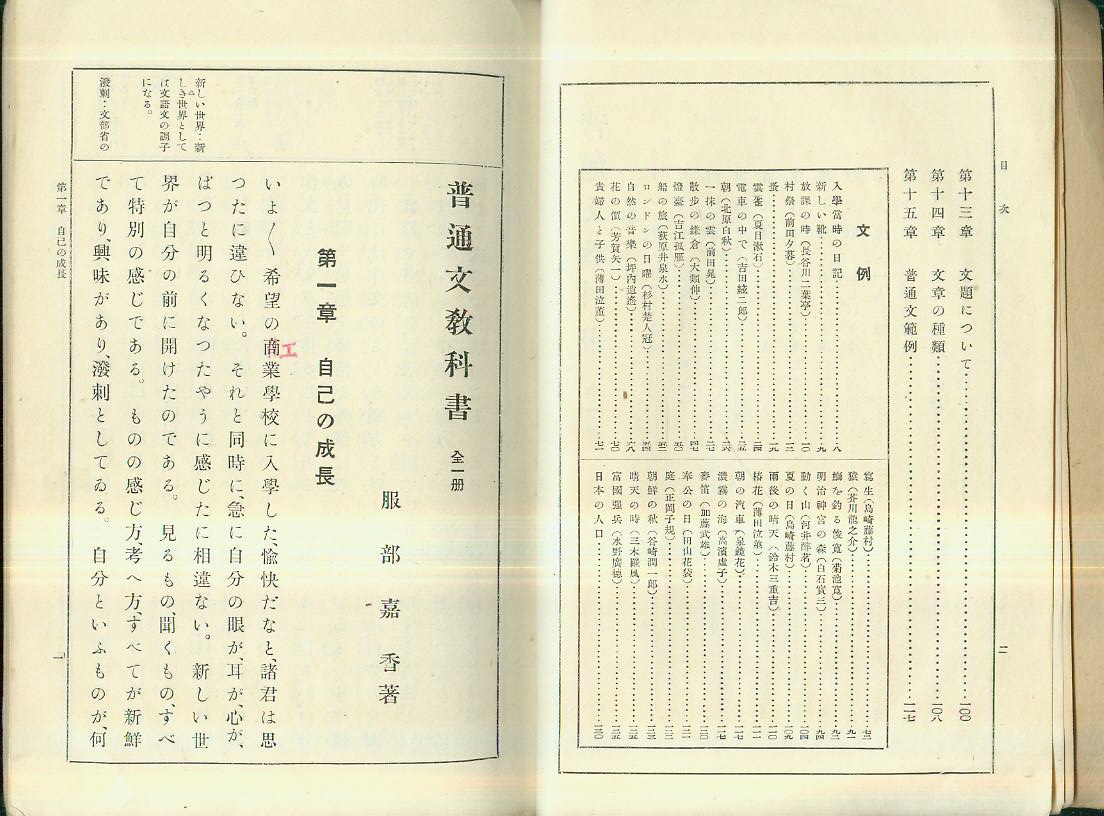 目次
二
第十三章 文題について 一〇〇
第十四章 文章の種類 一〇八
第十五章 普通文範例 一一七
文例
入學當時の日記 八
新しい靴 九
放課の時(長谷川二葉亭) 一〇
村祭(前田夕暮)
蚤
雲雀(夏目漱石)
電車の中で(吉田絃二郎)
朝(北原白秋)
一抹の雲(前田晁)
散歩の鎌倉(大類伸)
燈臺(吉江孤雁)
船の旅(荻原井泉水)
ロンドンの日曜(杉村楚人冠)
自然の音樂(坪内逍遙)
花の價(芳賀矢一)
貴婦人と子供(薄田泣菫)
寫生(島崎藤村)
猿(芥川龍之介)
鰤を釣る俊寛(菊池寛)
明治神宮の森(白石實三)
動く山(河井醉茗)
夏の日(島崎藤村)
雨後の晴天(鈴木三重吉)
椿花(薄田泣菫)
朝の汽車(泉鏡花)
濃霧の海(高濱虚子)
麥笛(加藤武雄)
奉公の日(田山花袋)
庭(正岡子規)
朝鮮の秋(谷崎潤一郎)
晴天の時(三木羅風)
富國强兵(水野廣德)
日本の人口
普通文敎科書 全一册
服部嘉香著
第一章 自己の成長
いよ〱希望の商業學校に入學した、愉快だなと、諸君は思
工
つたに違ひない。それと同時に、急に自分の眼が、耳が、心が、
ぱつと明るくなつたやうに感じたに相違ない。新しい世
界が自分の前に開けたのである。見るもの聞くもの、すべ
て特別の感じである。ものの感じ方、考へ方すべてが新鮮
であり、興味があり、潑剌としてゐる。自分といふものが、何
新しい世界…新
しき世界として
は文語文の調子
になる。
潑剌…文部省の
第一章 自己の成長
一